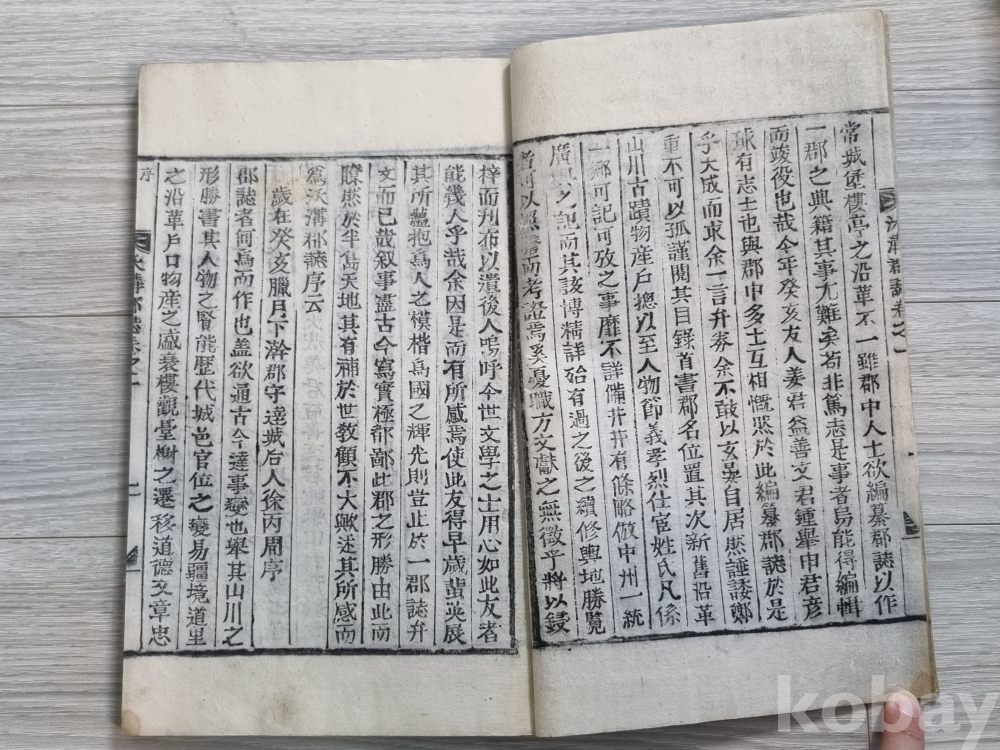 常城堡樓亭之沿革不一雖郡中人士欲編纂郡誌以作
一郡之典籍其事尤難矣苟非篤志是事者烏能得編輯
而竣役也哉今年癸亥友人姜君益善文君鍾畢申君彦
球有志士也與郡中多士互相慨然於此編纂郡誌於是
乎大成而求余一言弁卷余不敢以玄晏自居然誰諉鄭
重不可以孤謹閱其目錄首書郡名位置其次新舊沿革
山川古蹟物産户摠以至人物節義孝烈仕宦姓氏凡係
一鄉可記可攷之事靡不詳備井井有條略倣中州一統
廣記之記而其該博精詳殆有過之後之續修輿地勝覽
者可以照 而考證焉奚憂職方文獻之無徵乎將以鋟
梓而刋布以遺後人嗚呼今世文學之士用心如此友者
能幾人乎哉余因是而有所感焉使此友得早歲蜚英展
其所蘊抱爲人之模楷爲國之輝先則豈止於一郡誌弁
文而已哉叙事盡古今寫實極都鄙此郡之形勝由此而
瞭然於半島天地其有補於世敎顧不大歟述其所感而
爲沃溝郡誌序云
歲在癸亥臘月下澣郡守達城后人徐丙周序
郡誌者何爲而作也盖欲通古今達事變也舉其山川之
形勝書其人物之賢能歷代城邑官位之變易疆境道里
之沿革戶口物産之盛衰樓觀臺榭之遷移道德文章忠
序
kobay